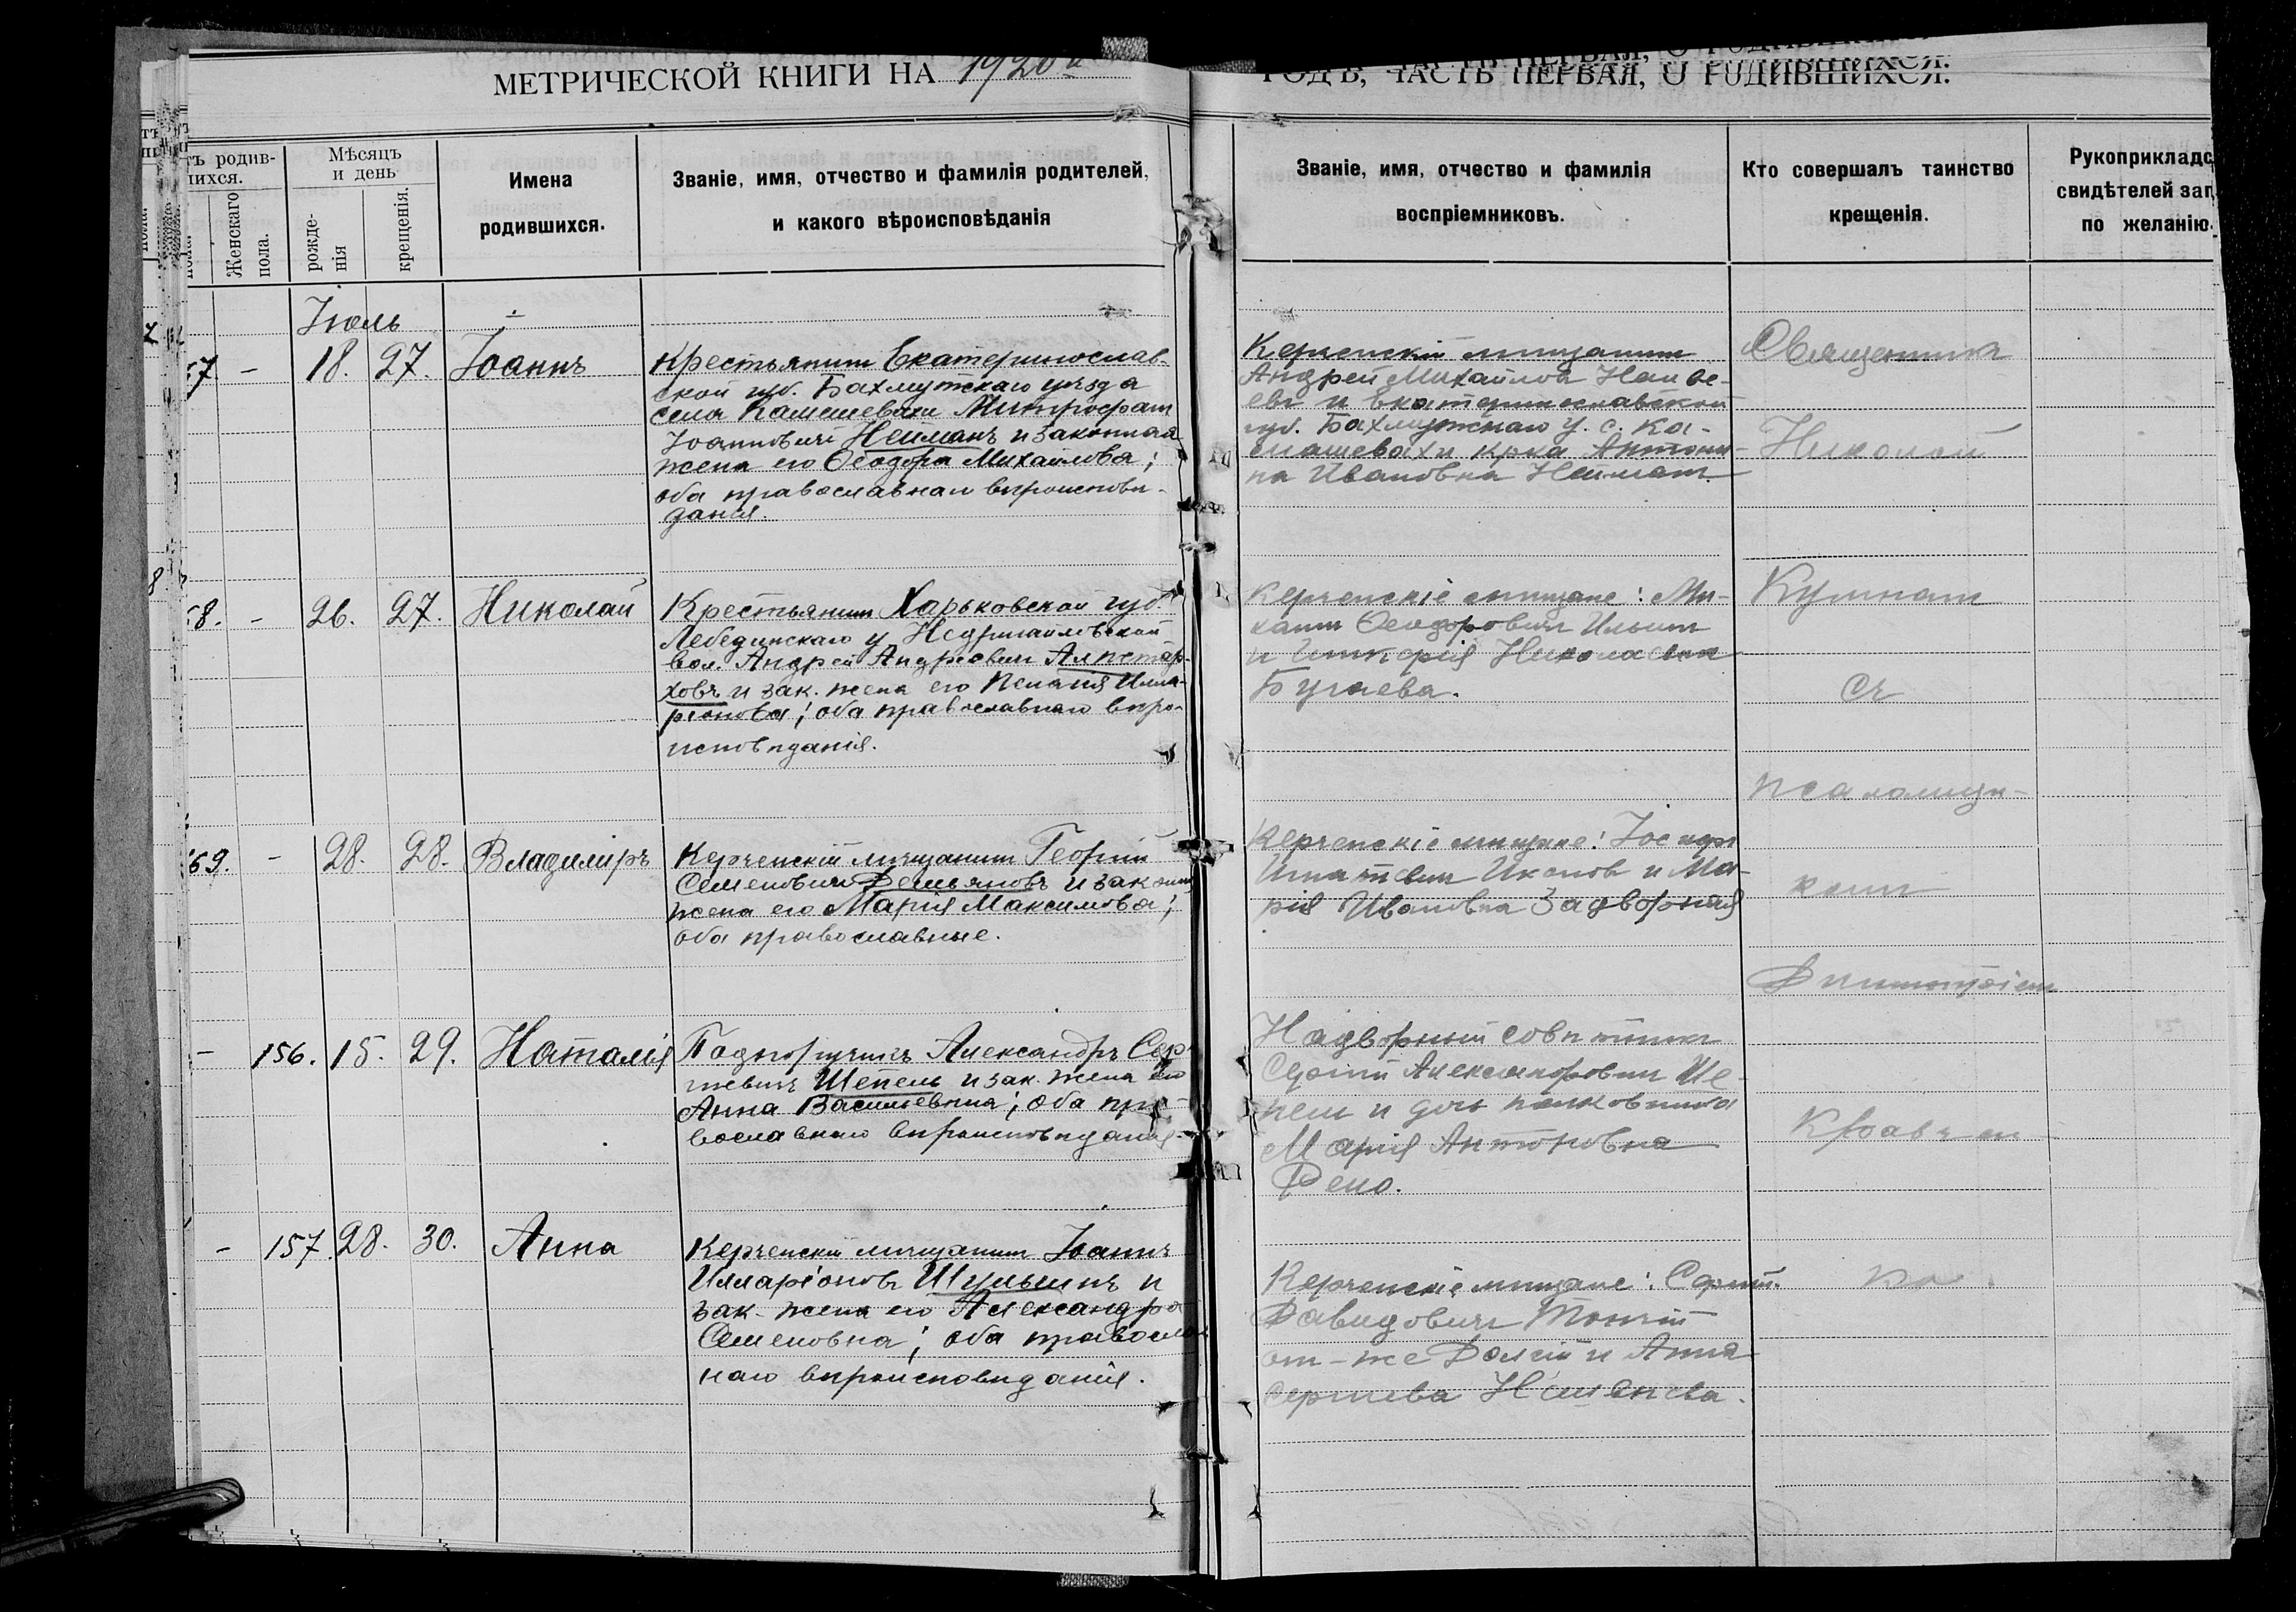 МЕТРИЧЕСКОЙ КНИГИ НА 1920й
ГОДЪ, ЧАСТЬ ПЕРВАЯ, О РОДИВШИХСЯ.
тъ родив-
шихся.
Женскаго
пола.
Мѣсяцъ
и день
рожде-
нія
крещенія.
Имена
родившихся.
Званіе, имя, отчество и фамилія родителей,
и какого вѣроисповѣданія
Званіе, имя, отчество и фамилія
воспріемниковъ.
Кто совершалъ таинство
крещенія.
Рукоприкладс
свидѣтелей зап
по желанію.
Іюль
57. - 18. 27. Іоаннъ
Крестьянинъ Екатеринослав-
ской губ. Бахмутскаго уѣзда
села Камешевахи Митрофанъ
Іоанновичъ Нейманъ и законная
жена его Ѳеодора Михайлова;
оба православнаго вѣроисповѣ-
данія.
Керченскій мѣщанинъ
Андрей Михайловъ
евъ и Екатеринославской
губ. Бахмутскаго у. с. Ка-
мышевахи кр-ка Антони-
на Ивановна Нейманъ.
58. - 26. 27. Николай
Крестьянинъ Харьковской губ.
Лебединскаго у. Недригайловской
вол. Андрей Андреевичъ
ховъ и зак. жена его Пелагія Илла-
ріонова; оба православнаго вѣро-
исповѣданія.
Керченскіе мѣщане: Ми-
хаилъ Ѳеодоровичъ Ильинъ
и Гликерія Николаевна
Бугаева.
159. - 28. 28. Владиміръ
Керченскій мѣщанинъ Георгій
Семеновичъ Демьяновъ и закон.
жена его Марія Максимова;
оба православные.
Керченскіе мѣщане: Іосифъ
Игнатьевичъ и Ма-
рія Ивановна Задворная
- 156. 15. 29. Наталія
Подпоручикъ Александръ Сер-
гѣевичъ Шепель и зак. жена его
Анна Васильевна; оба пра-
вославнаго вѣроисповѣданія.
Надворный совѣтникъ
Сергій Александровичъ Ше-
пель и дочь полковника
Марія Антоновна
Рено.
- 157. 28. 30. Анна
Керченскій мѣщанинъ Іоаннъ
Илларіоновъ Шульгинъ и
зак. жена его Александра
Семеновна; оба православ-
наго вѣроисповѣданія.
Керченскіе мѣщане: Сергій
Давидовичъ
онъ-же Долгій и Анна
Сергѣева
Священникъ
Николай
Съ
псаломщи-
комъ
Димитріемъ
Кравчен
ко.